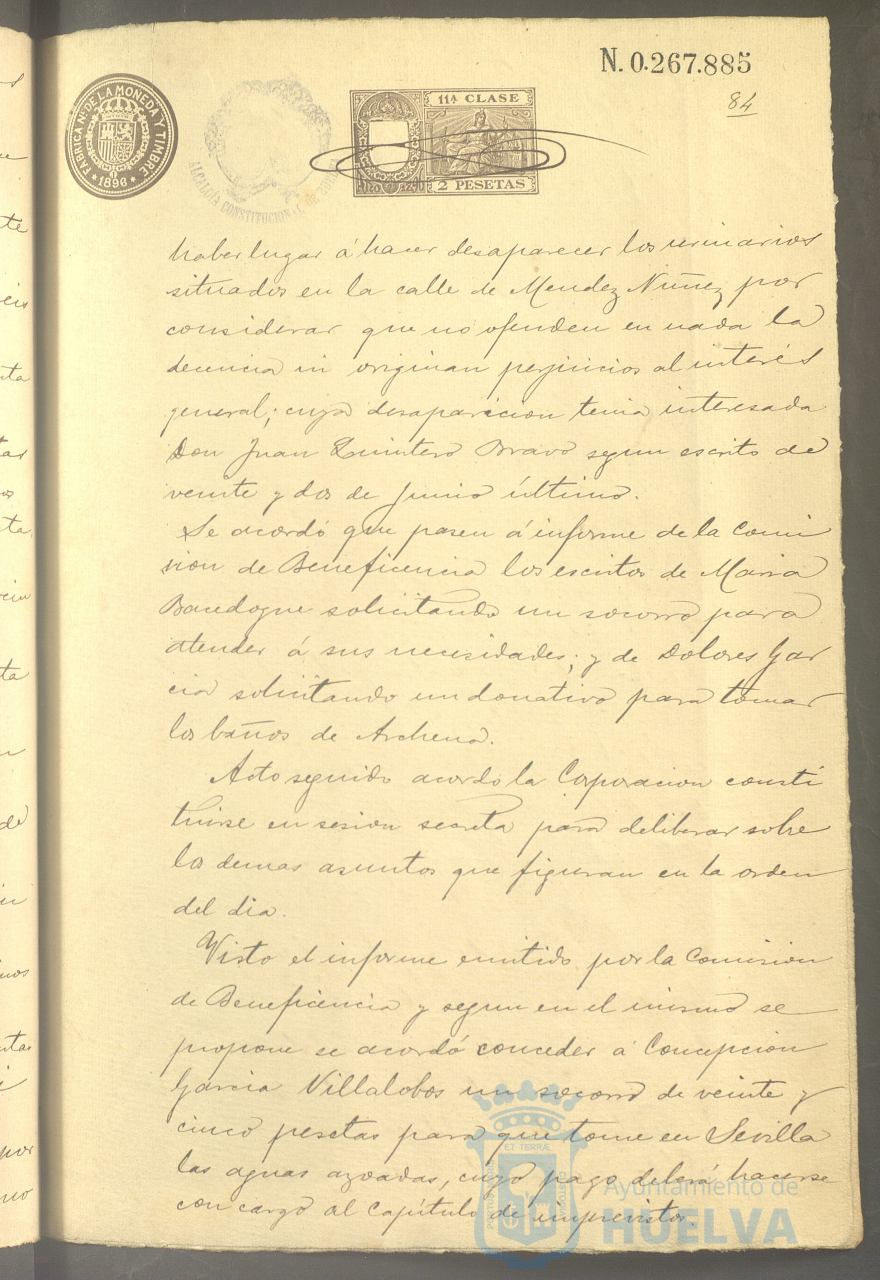 N. 0.267.885
84
FABRICA Nal. DE LA MONEDA Y TIMBRE
* 1896 *
ALCALDÍA CONSTITUCIONAL DE
11ª CLASE
2 PESETAS
haber lugar á hacer desaparecer los urinarios
situados en la calle de Mendez Nuñez por
considerar que no ofenden en nada la
decencia ni originan perjuicios al interés
general; cuya desaparicion tenia interesada
Don Juan Quintero Bravo segun escrito de
veinte y dos de Junio último.
Se acordó que pasen á informe de la Comi
sion de Beneficencia los escritos de Maria
solicitando un socorro para
atender á sus necesidades; y de Dolores Gar
cia solicitando un donativo para tomar
los baños de Archena.
Acto seguido acordó la Corporacion consti
tuirse en sesion secreta para deliberar sobre
los demas asuntos que figuran en la orden
del dia.
Visto el informe emitido por la Comision
de Beneficencia y segun en el mismo se
propone se acordó conceder á Concepcion
Garcia Villalobos un socorro de veinte y
cinco pesetas para que tome en Sevilla
las aguas azoadas, cuyo pago deberá hacerse
con cargo al Capítulo de imprevistos.
ET TERRÆ
Ayuntamiento de
HUELVA